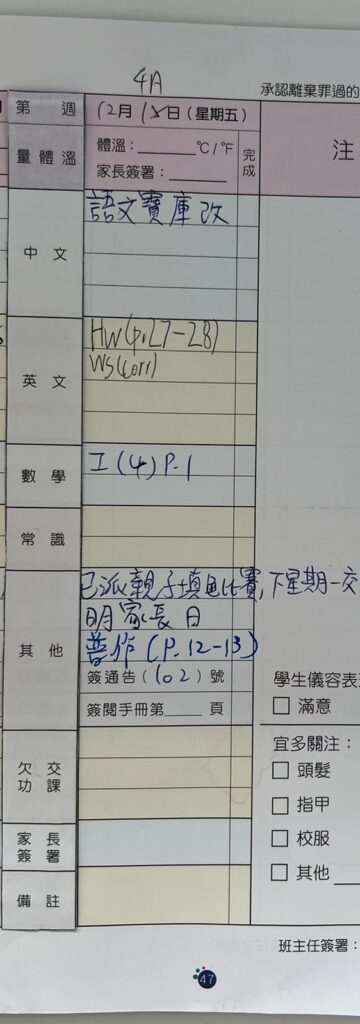 4A
承認離棄罪過的
第 週
12月15日（星期五）
量體溫
體溫：______°C/°F
家長簽署：______
完成
注
中文
語文寶庫改
英文
HW(p.27-28)
WS(corr)
數學
工(4)P.1
常識
其他
已派親子填色比賽,下星期一交
明家長日
普作(P.12-13)
簽通告(102)號
簽閱手冊第____頁
學生儀容表
滿意
宜多關注：
頭髮
指甲
校服
其他
欠交功課
家長簽署
備註
班主任簽署：
47